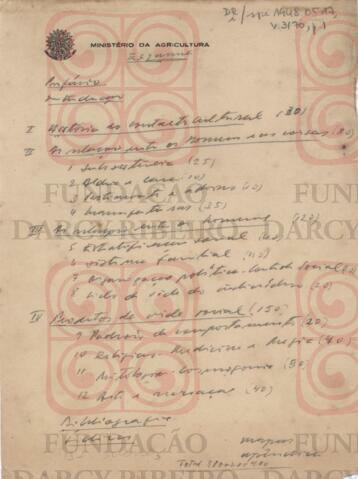 DR
1948.05.17,
MINISTÉRIO DA AGRICULTURA
Prefácio
Introdução
I História do contacto cultural (30)
II As relações entre os homens e as coisas (80)
1 Subsistência (25)
2 Aldeia e casa (10)
3 Vestimenta e adornos (20)
4 Manufaturas (25)
III As relações entre os homens (120)
5 Estratificação social
6 sistema familial (40)
7 Organização política. Controle Social
8 Ciclo de vida do indivíduo (20)
IV Produtos de vida social (150)
9 Padrões de comportamento (20)
10 Religião. Medicina e Magia (40)
11 Mitologia e cosmogonia (50)
12 Arte e (40)
Bibliografia
Índices
mapas
apêndice
Total
FUNDAÇÃO
DARCY RIBEIRO
FUNDAÇÃO
DARCY RIBEIRO